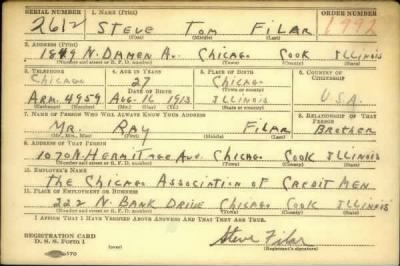 SERIAL NUMBER 1. NAME (Print) ORDER NUMBER
2612 STEVE TOM FILAR
(First) (Middle) (Last)
2. ADDRESS (Print)
1849 N. DAMEN AV. CHICAGO COOK ILLINOIS
(Number and street or R. F. D. number) (Town) (County) (State)
3. TELEPHONE 4. AGE IN YEARS 5. PLACE OF BIRTH 6. COUNTRY OF CITIZENSHIP
CHICAGO 27 CHICAGO
DATE OF BIRTH (Town or county)
ARM. 4959 AUG. 16 1913 ILLINOIS U.S.A.
(Exchange) (Number) (Mo.) (Day) (Yr.) (State or country)
7. NAME OF PERSON WHO WILL ALWAYS KNOW YOUR ADDRESS 8. RELATIONSHIP OF THAT PERSON
MR. RAY FILAR BROTHER
(Mr., Mrs., Miss) (First) (Middle) (Last)
9. ADDRESS OF THAT PERSON
1070 N. HERMITAGE AVE. CHICAGO COOK ILLINOIS
(Number and street or R. F. D. number) (Town) (County) (State)
10. EMPLOYER'S NAME
THE CHICAGO ASSOCIATION OF CREDIT MEN
11. PLACE OF EMPLOYMENT OR BUSINESS
222 N. BANK DRIVE CHICAGO COOK ILLINOIS
(Number and street or R. F. D. number) (Town) (County) (State)
I AFFIRM THAT I HAVE VERIFIED ABOVE ANSWERS AND THAT THEY ARE TRUE.
REGISTRATION CARD
D. S. S. Form 1 Steve Filar
(over) (Registrant's signature)